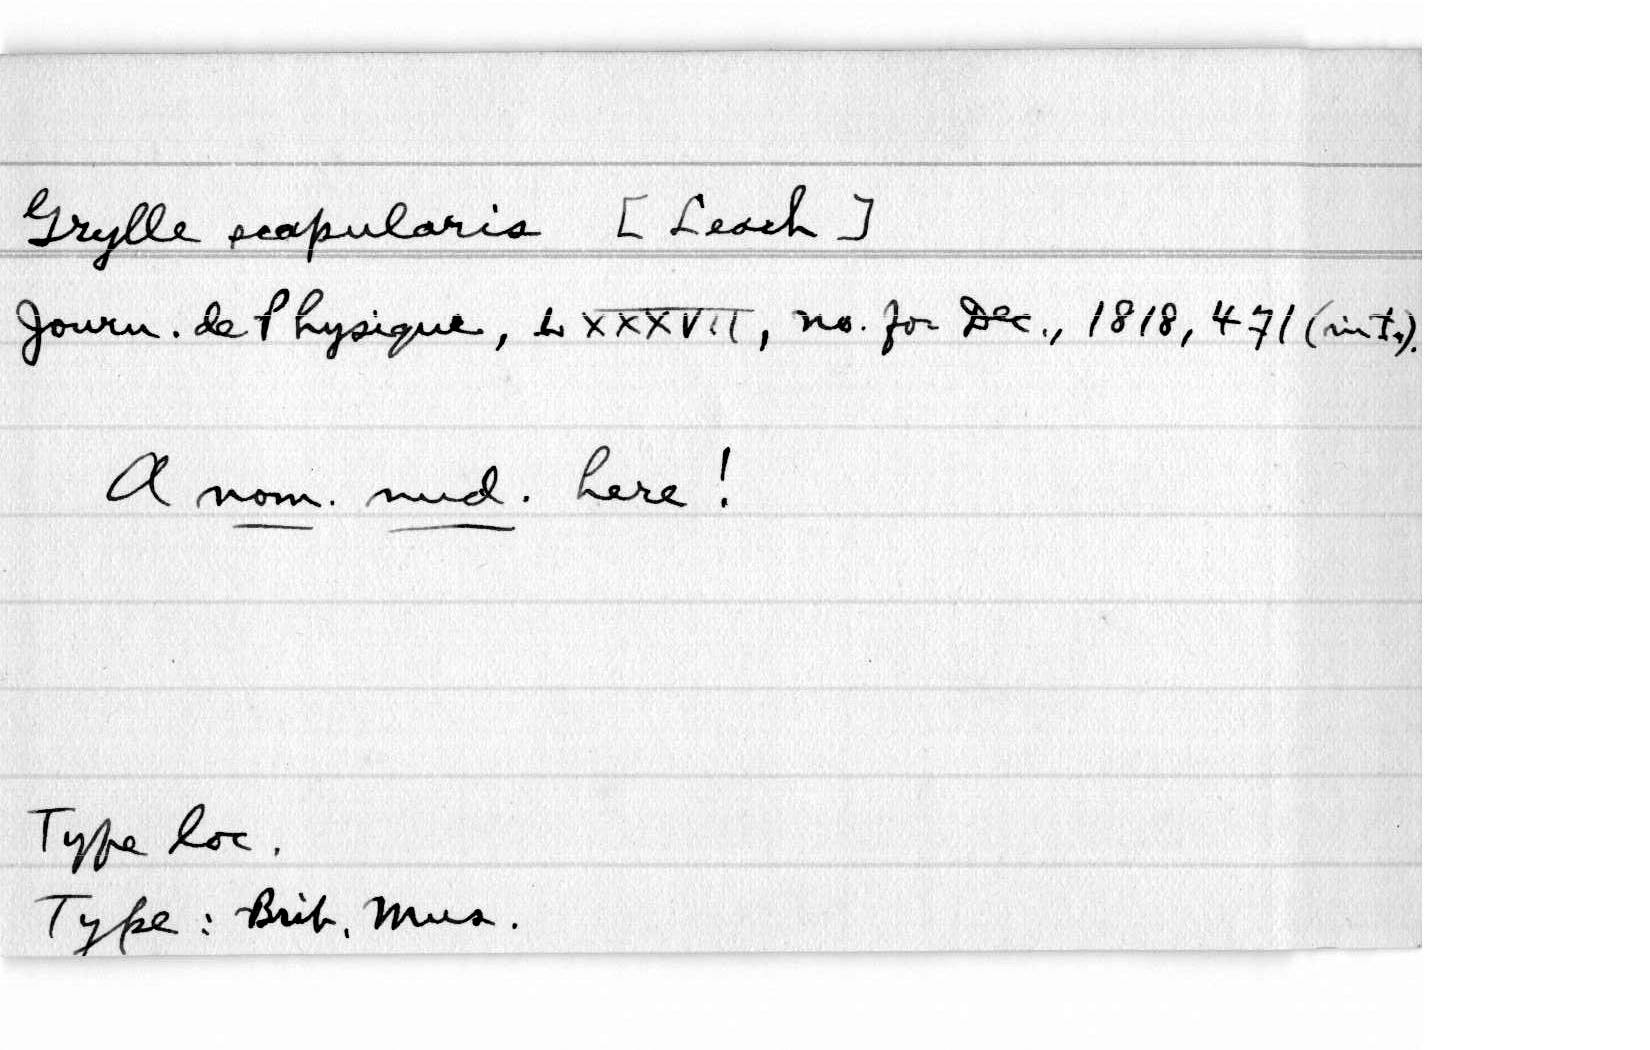 Grylle scapularis [Leach]
Journ. de Physique, LXXXVII, no. for Dec., 1818, 471 (in t.).
A nom. nud. here!
Type loc.
Type: Brit. Mus.